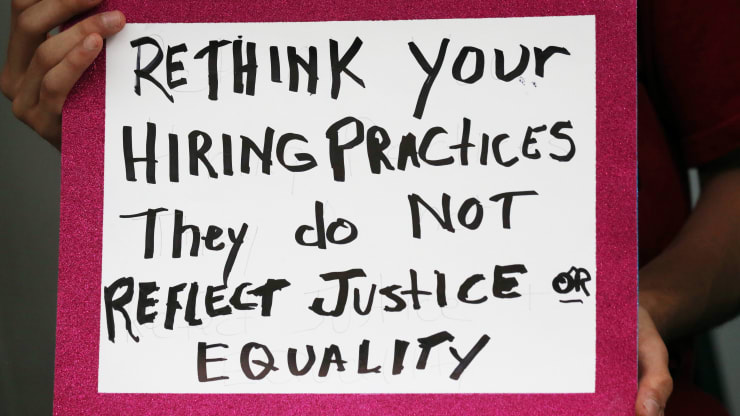 RETHINK your
HIRING PRACTICES
They do NOT
REFLECT JUSTICE OR
EQUALITY